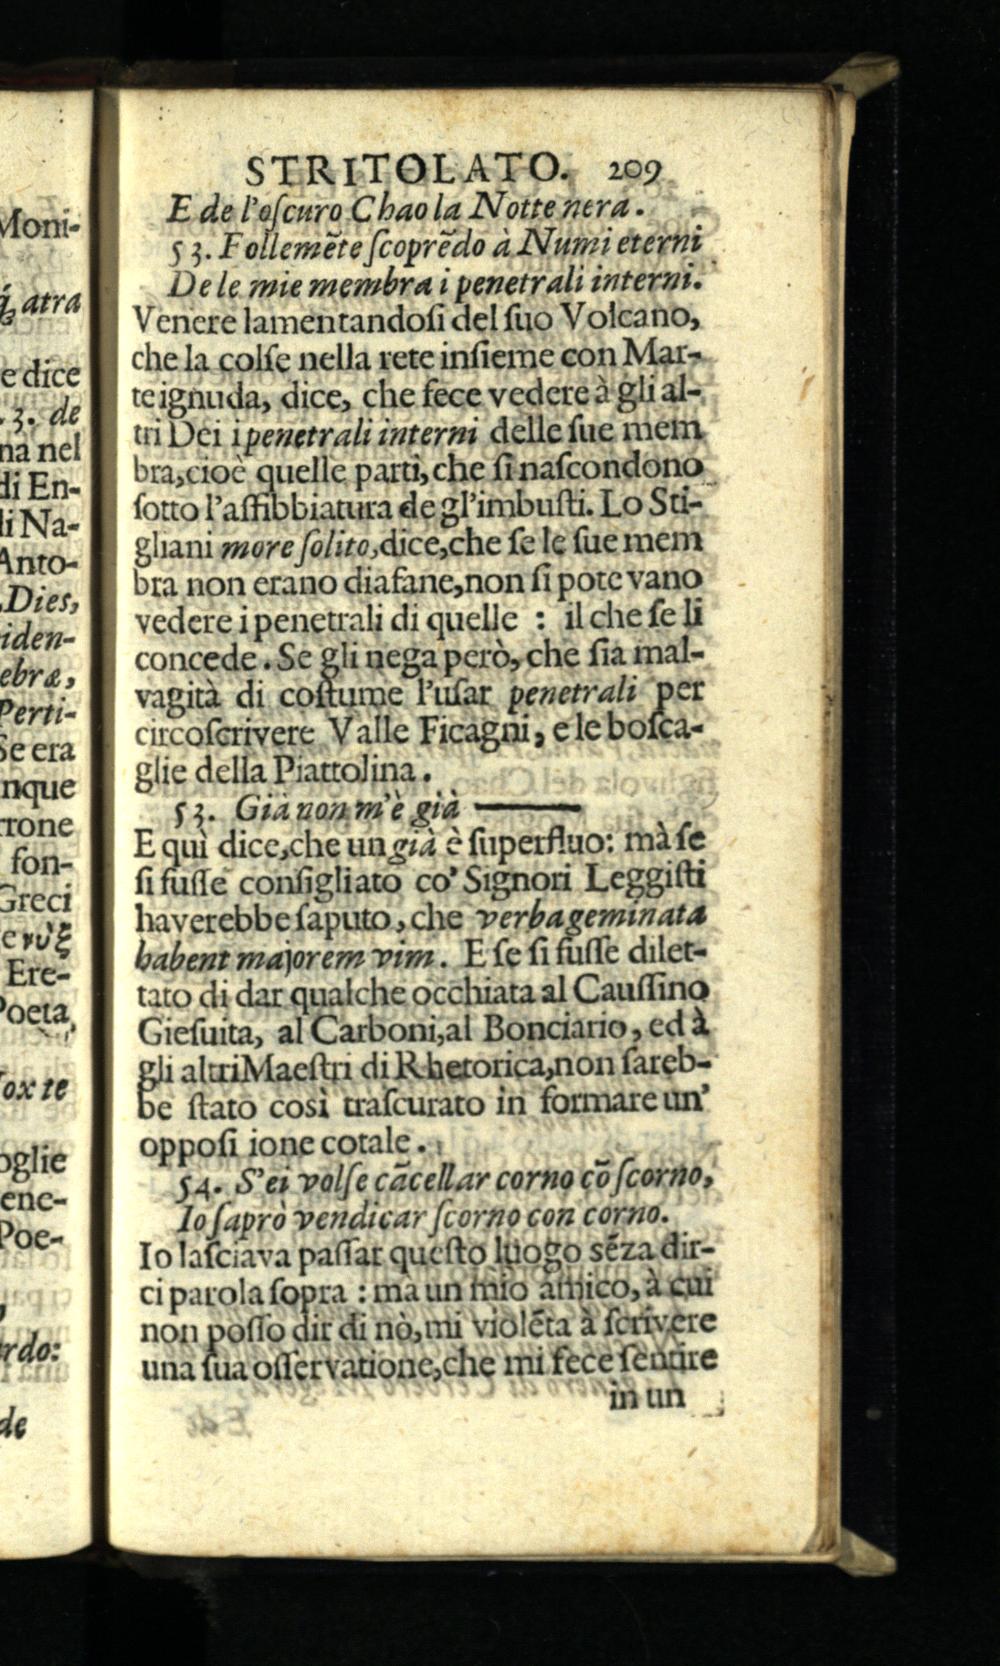 Moni-
q́; atra
e dice
. 3. de
na nel
di En-
li Na-
Anto-
Dies,
iden-
ebræ,
Perti-
Se era
nque
rrone
fon-
Greci
e νὺξ
Ere-
Poeta
ox te
oglie
ene-
Poe-
rdo:
de
STRITOLATO. 209
E de l'oſcuro Chao la Notte nera.
53. Follemẽte ſcoprẽdo à Numi eterni
De le mie membra i penetrali interni.
Venere lamentandoſi del ſuo Volcano,
che la colſe nella rete inſieme con Mar-
te ignuda, dice, che fece vedere à gli al-
tri Dei i penetrali interni delle ſue mem
bra, cioè quelle parti, che ſi naſcondono
ſotto l'affibbiatura de gl'imbuſti. Lo Sti-
gliani more ſolito, dice, che ſe le ſue mem
bra non erano diafane, non ſi pote vano
vedere i penetrali di quelle : il che ſe li
concede. Se gli nega però, che ſia mal-
vagità di coſtume l'uſar penetrali per
circoſcrivere Valle Ficagni, e le boſca-
glie della Piattolina.
53. Già non m'è già ———
E quì dice, che un già è ſuperfluo: mà ſe
ſi fuſſe conſigliato co' Signori Leggiſti
haverebbe ſaputo, che verba geminata
habent majorem vim. E ſe ſi fuſſe dilet-
tato di dar qualche occhiata al Cauſſino
Gieſuita, al Carboni, al Bonciario, ed à
gli altri Maeſtri di Rhetorica, non ſareb-
be ſtato così traſcurato in formare un'
oppoſi ione cotale.
54. S'ei volſe cãcellar corno cõ ſcorno,
Io ſaprò vendicar ſcorno con corno.
Io laſciava paſſar queſto luogo sẽza dir-
ci parola ſopra : mà un mio amico, à cui
non poſſo dir di nò, mi violẽta à ſcrivere
una ſua oſſervatione, che mi fece ſentire
in un